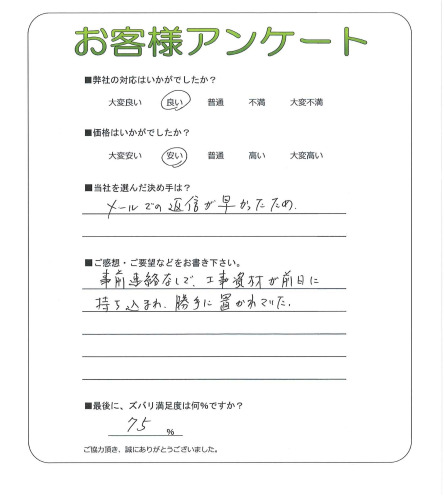 お客様アンケート
■弊社の対応はいかがでしたか？
大変良い 良い 普通 不満 大変不満
■価格はいかがでしたか？
大変安い 安い 普通 高い 大変高い
■当社を選んだ決め手は？
メールでの返信が早かったため.
■ご感想・ご要望などをお書き下さい。
事前連絡なしで、工事資材が前日に
持ち込まれ、勝手に置かれていた.
■最後に、ズバリ満足度は何%ですか？
75 %
ご協力頂き、誠にありがとうございました。